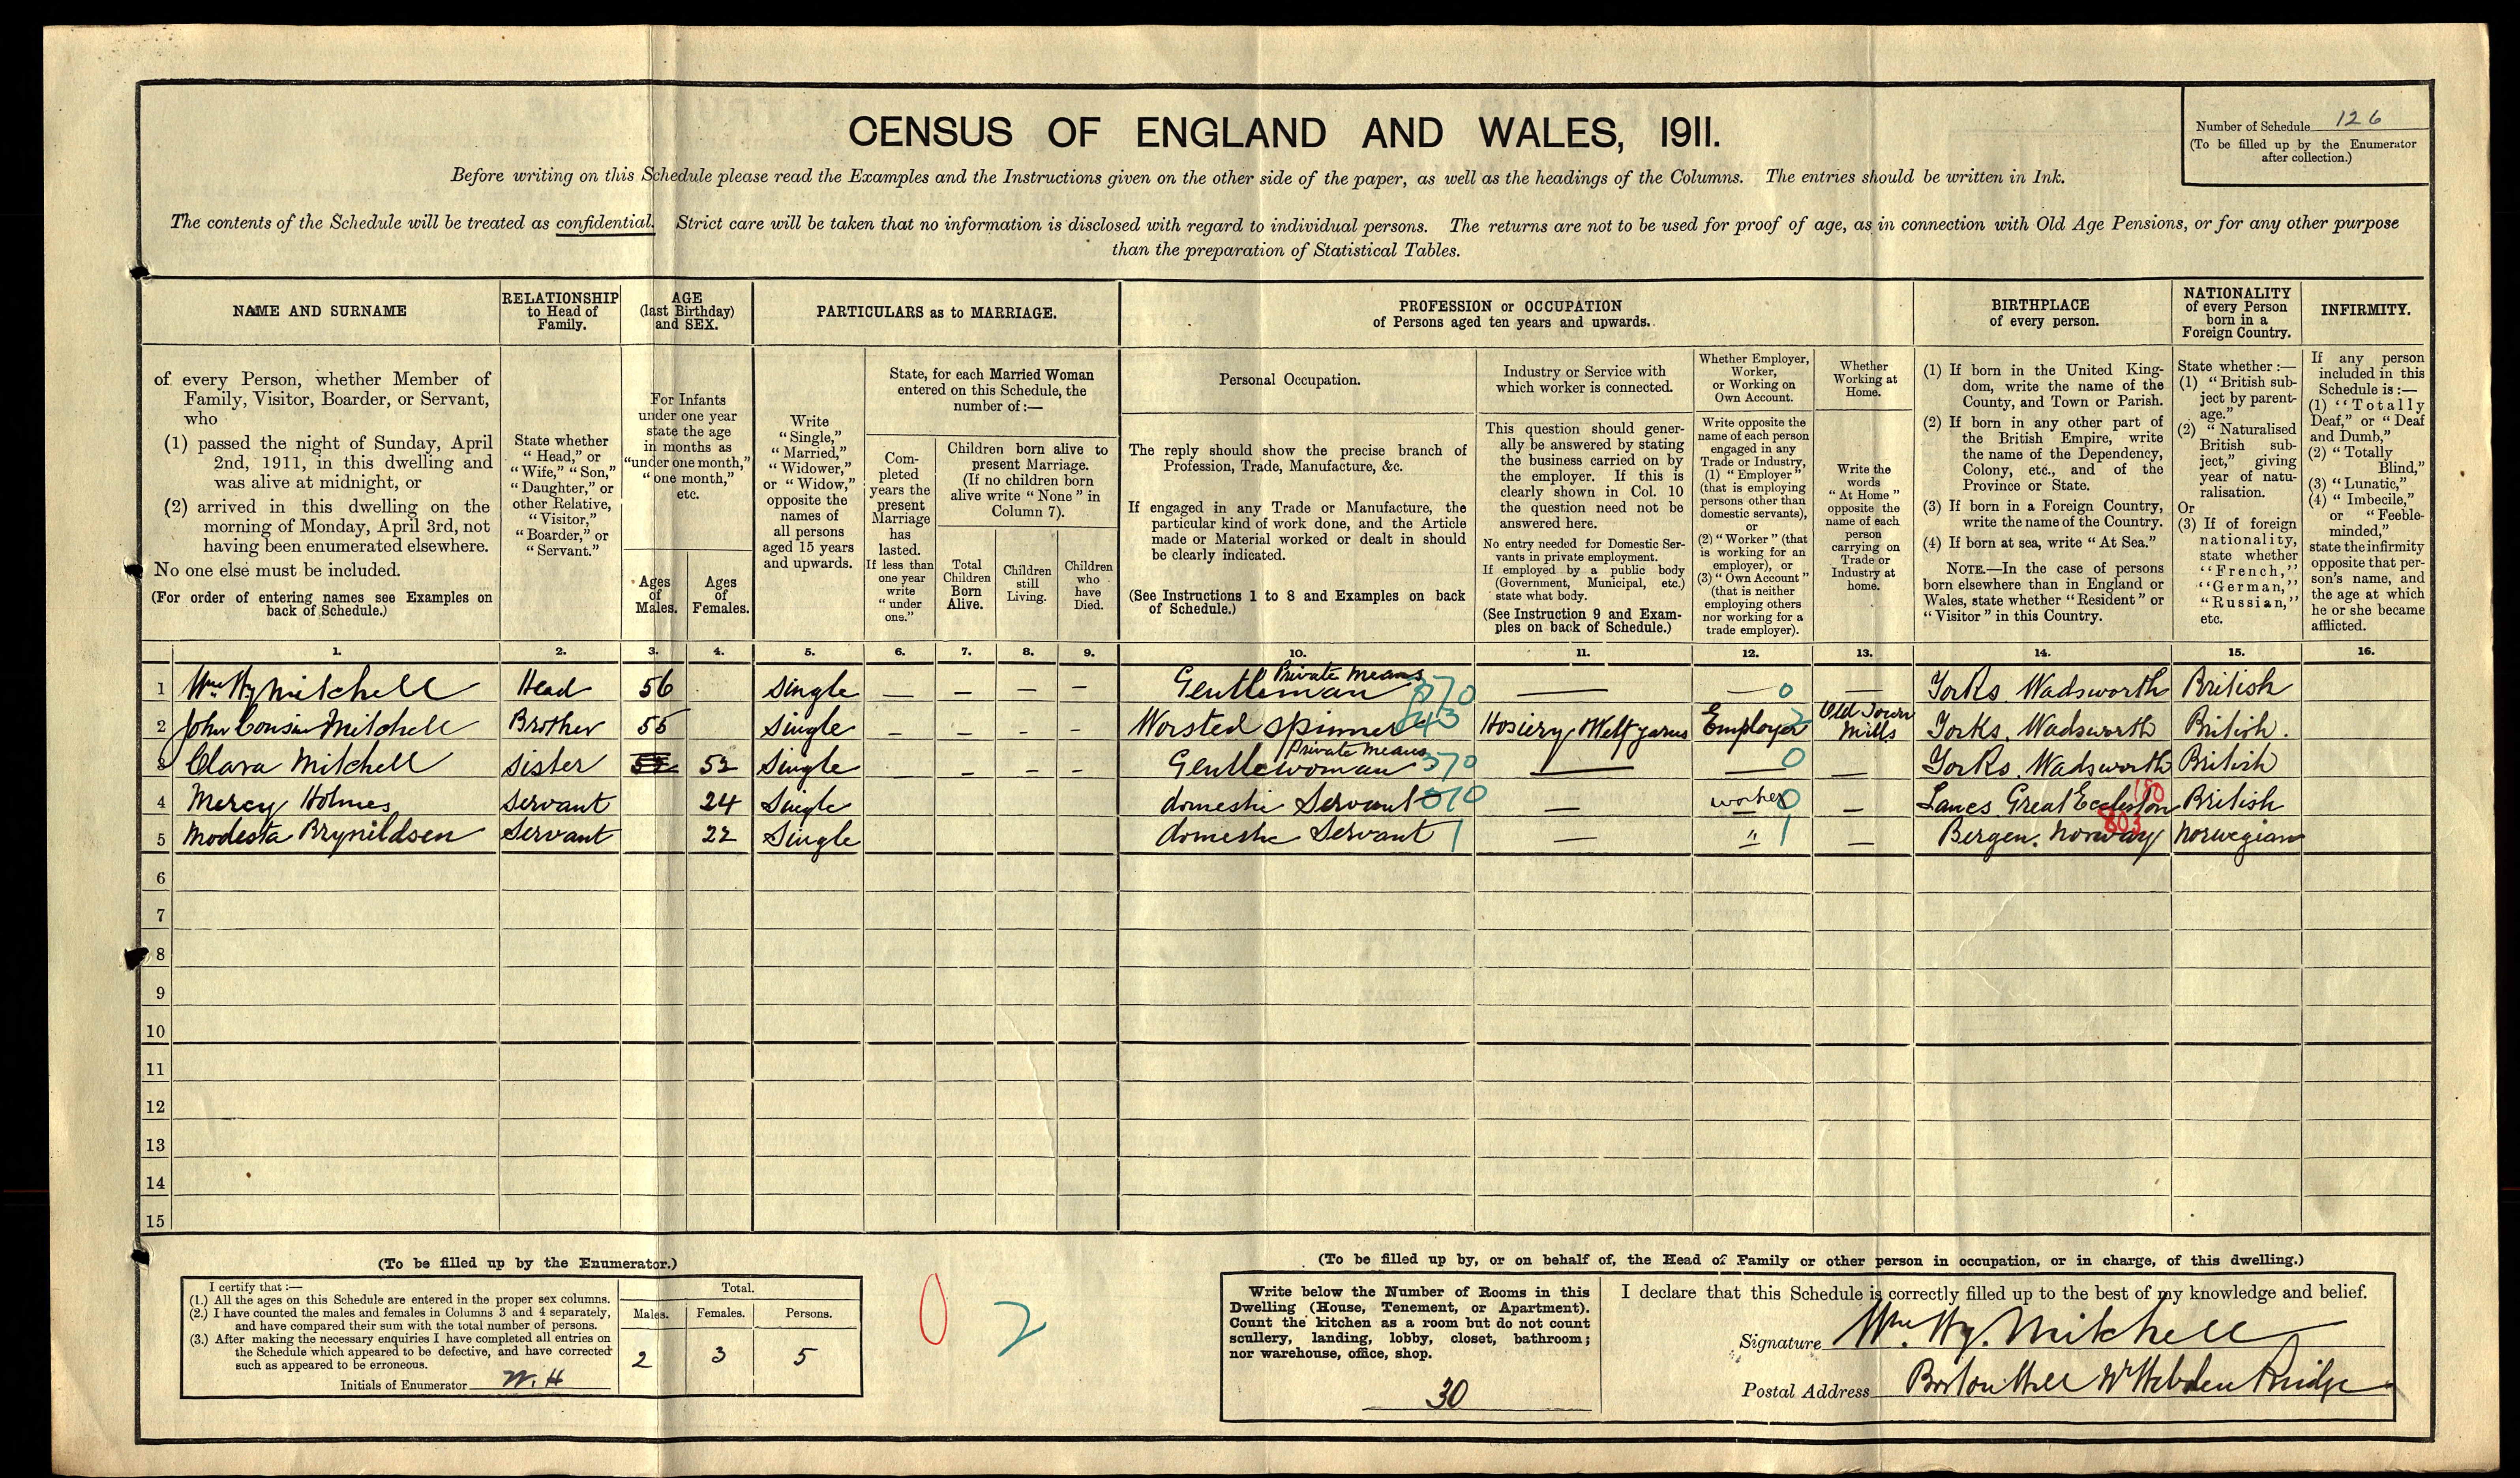 CENSUS OF ENGLAND AND WALES, 1911.
Number of Schedule 126
(To be filled up by the Enumerator
after collection.)
Before writing on this Schedule please read the Examples and the Instructions given on the other side of the paper, as well as the headings of the Columns. The entries should be written in Ink.
The contents of the Schedule will be treated as confidential. Strict care will be taken that no information is disclosed with regard to individual persons. The returns are not to be used for proof of age, as in connection with Old Age Pensions, or for any other purpose
than the preparation of Statistical Tables.
NAME AND SURNAME
of every Person, whether Member of
Family, Visitor, Boarder, or Servant,
who
(1) passed the night of Sunday, April
2nd, 1911, in this dwelling and
was alive at midnight, or
(2) arrived in this dwelling on the
morning of Monday, April 3rd, not
having been enumerated elsewhere.
No one else must be included.
(For order of entering names see Examples on
back of Schedule.)
RELATIONSHIP
to Head of
Family.
State whether
"Head," or
"Wife," "Son,"
"Daughter," or
other Relative,
"Visitor,"
"Boarder," or
"Servant."
AGE
(last Birthday)
and SEX.
For Infants
under one year
state the age
in months as
"under one month,"
"one month,"
etc.
Ages
of
Males.
Ages
of
Females.
PARTICULARS as to MARRIAGE.
Write
"Single,"
"Married,"
"Widower,"
or "Widow,"
opposite the
names of
all persons
aged 15 years
and upwards.
State, for each Married Woman
entered on this Schedule, the
number of:—
Com-
pleted
years the
present
Marriage
has
lasted.
If less than
one year
write
"under
one."
Children born alive to
present Marriage.
(If no children born
alive write "None" in
Column 7).
Total
Children
Born
Alive.
Children
still
Living.
Children
who
have
Died.
PROFESSION or OCCUPATION
of Persons aged ten years and upwards.
Personal Occupation.
The reply should show the precise branch of
Profession, Trade, Manufacture, &c.
If engaged in any Trade or Manufacture, the
particular kind of work done, and the Article
made or Material worked or dealt in should
be clearly indicated.
(See Instructions 1 to 8 and Examples on back
of Schedule.)
Industry or Service with
which worker is connected.
This question should gener-
ally be answered by stating
the business carried on by
the employer. If this is
clearly shown in Col. 10
the question need not be
answered here.
No entry needed for Domestic Ser-
vants in private employment.
If employed by a public body
(Government, Municipal, etc.)
state what body.
(See Instruction 9 and Exam-
ples on back of Schedule.)
Whether Employer,
Worker,
or Working on
Own Account.
Write opposite the
name of each person
engaged in any
Trade or Industry,
(1) "Employer"
(that is employing
persons other than
domestic servants),
or
(2) "Worker" (that
is working for an
employer), or
(3) "Own Account"
(that is neither
employing others
nor working for a
trade employer).
Whether
Working at
Home.
Write the
words
"At Home"
opposite the
name of each
person
carrying on
Trade or
Industry at
home.
BIRTHPLACE
of every person.
(1) If born in the United King-
dom, write the name of the
County, and Town or Parish.
(2) If born in any other part of
the British Empire, write
the name of the Dependency,
Colony, etc., and of the
Province or State.
(3) If born in a Foreign Country,
write the name of the Country.
(4) If born at sea, write "At Sea."
NOTE.—In the case of persons
born elsewhere than in England or
Wales, state whether "Resident" or
"Visitor" in this Country.
NATIONALITY
of every Person
born in a
Foreign Country.
State whether:—
(1) "British sub-
ject by parent-
age."
(2) "Naturalised
British sub-
ject," giving
year of natu-
ralisation.
Or
(3) If of foreign
nationality,
state whether
"French,"
"German,"
"Russian,"
etc.
INFIRMITY.
If any person
included in this
Schedule is:—
(1) "Totally
Deaf," or "Deaf
and Dumb,"
(2) "Totally
Blind,"
(3) "Lunatic,"
(4) "Imbecile,"
or "Feeble-
minded,"
state the infirmity
opposite that per-
son's name, and
the age at which
he or she became
afflicted.
1. 2. 3. 4. 5. 6. 7. 8. 9. 10. 11. 12. 13. 14. 15. 16.
1 Wm Hy Mitchell Head 56 Single — — — — Gentleman Private Means 070 — — 0 — Yorks. Wadsworth British
2 John Cousin Mitchell Brother 55 Single — — — — Worsted Spinner 43 Hosiery, Weft yarns Employer 2 Old Town Mills Yorks. Wadsworth British.
3 Clara Mitchell Sister 52 Single — — — Gentlewoman Private Means 370 — — 0 — Yorks. Wadsworth British
4 Mercy Holmes Servant 24 Single domestic Servant 010 — worker 0 — Lancs Great Eccleston 150 British
5 Modesta Brynildsen Servant 22 Single domestic Servant 1 — " 1 — Bergen. Norway 803 Norwegian
6
7
8
9
10
11
12
13
14
15
(To be filled up by the Enumerator.)
I certify that:—
(1.) All the ages on this Schedule are entered in the proper sex columns.
(2.) I have counted the males and females in Columns 3 and 4 separately,
and have compared their sum with the total number of persons.
(3.) After making the necessary enquiries I have completed all entries on
the Schedule which appeared to be defective, and have corrected
such as appeared to be erroneous.
Initials of Enumerator W. H
Total.
Males. Females. Persons.
2 3 5
0 2
(To be filled up by, or on behalf of, the Head of Family or other person in occupation, or in charge, of this dwelling.)
Write below the Number of Rooms in this
Dwelling (House, Tenement, or Apartment).
Count the kitchen as a room but do not count
scullery, landing, lobby, closet, bathroom;
nor warehouse, office, shop.
30
I declare that this Schedule is correctly filled up to the best of my knowledge and belief.
Signature Wm. Hy. Mitchell
Postal Address Boston Hill Nr Hebden Bridge